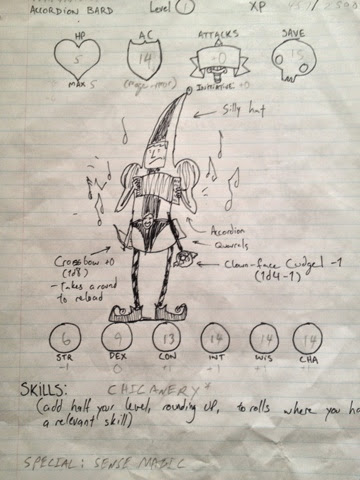 ACCORDION BARD Level 1 XP
HP AC ATTACKS SAVE
5 14 +0 15
MAX 5 INITIATIVE +0
Silly hat
Accordion
Quarrels
Crossbow +0
(1d8)
- Takes a round
to reload
Clown-face Cudgel -1
(1d4-1)
6 9 13 14 14 14
STR DEX CON INT WIS CHA
-1 0 +1 +1 +1 +1
SKILLS: CHICANERY*
(add half your level, rounding up, to rolls where you ha
a relevant skill)
SPECIAL: SENSE MAGIC